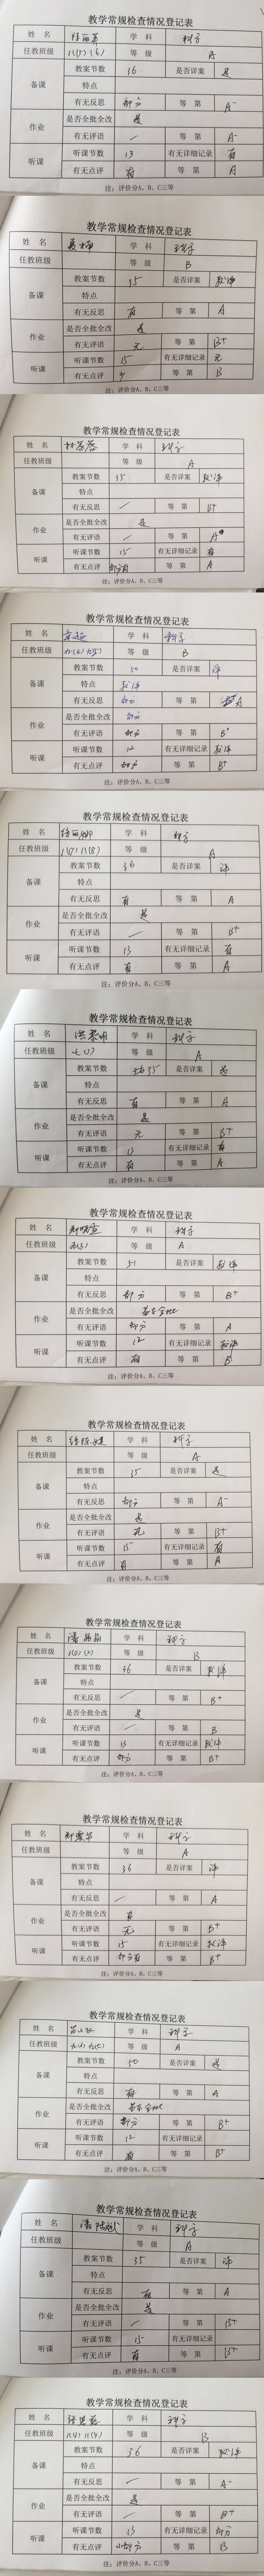 教学常规检查情况登记表
姓 名 学 科 科学
任教班级 八(5) (6) 等 级 A
备课 教案节数 36 是否详案 是
特点
有无反思 部分 等 第 A-
作业 是否全批全改 是
有无评语 / 等 第 A-
听课 听课节数 13 有无详细记录 有
有无点评 有 等 第 A
注：评价分A、B、C三等
教学常规检查情况登记表
姓 名 学 科 科学
任教班级 等 级 B
备课 教案节数 35 是否详案 较详
特点
有无反思 有 等 第 A
作业 是否全批全改 是
有无评语 无 等 第 B+
听课 听课节数 15 有无详细记录 无
有无点评 等 第 B
注：评价分A、B、C三等
教学常规检查情况登记表
姓 名 学 科 科学
任教班级 等 级 A
备课 教案节数 35 是否详案 较详
特点
有无反思 / 等 第 B+
作业 是否全批全改 是
有无评语 / 等 第 A
听课 听课节数 15 有无详细记录 有
有无点评 部分有 等 第 A
注：评价分A、B、C三等
教学常规检查情况登记表
姓 名 学 科 科学
任教班级 等 级 B
备课 教案节数 50 是否详案 详
特点 较详
有无反思 部分 等 第 A
作业 是否全批全改 部分
有无评语 部分 等 第 B+
听课 听课节数 12 有无详细记录 较详
有无点评 部分 等 第 B+
注：评价分A、B、C三等
教学常规检查情况登记表
姓 名 学 科 科学
任教班级 八(7) 八(8) 等 级 A
备课 教案节数 36 是否详案 详
特点
有无反思 有 等 第 A
作业 是否全批全改 是
有无评语 / 等 第 B+
听课 听课节数 13 有无详细记录 有
有无点评 有 等 第 A
注：评价分A、B、C三等
教学常规检查情况登记表
姓 名 洪黎明 学 科 科学
任教班级 等 级 A
备课 教案节数 35 是否详案 是
特点
有无反思 有 等 第 A
作业 是否全批全改 是
有无评语 无 等 第 B+
听课 听课节数 13 有无详细记录 有
有无点评 有 等 第 A
注：评价分A、B、C三等
教学常规检查情况登记表
姓 名 学 科 科学
任教班级 等 级 A
备课 教案节数 51 是否详案 较详
特点
有无反思 部分 等 第 B+
作业 是否全批全改 基本全批
有无评语 部分 等 第 A
听课 听课节数 12 有无详细记录 较详
有无点评 有 等 第 B
注：评价分A、B、C三等
教学常规检查情况登记表
姓 名 学 科 科学
任教班级 等 级 A
备课 教案节数 35 是否详案 是
特点
有无反思 部分 等 第 A-
作业 是否全批全改 是
有无评语 无 等 第 B+
听课 听课节数 15 有无详细记录 有
有无点评 有 等 第 A
注：评价分A、B、C三等
教学常规检查情况登记表
姓 名 潘晶晶 学 科 科学
任教班级 等 级 B
备课 教案节数 36 是否详案 较详
特点
有无反思 / 等 第 B+
作业 是否全批全改 是
有无评语 / 等 第 B
听课 听课节数 13 有无详细记录 较详
有无点评 部分 等 第 B+
注：评价分A、B、C三等
教学常规检查情况登记表
姓 名 学 科 科学
任教班级 等 级 A
备课 教案节数 36 是否详案 详
特点
有无反思 / 等 第 A
作业 是否全批全改 有
有无评语 无 等 第 B+
听课 听课节数 15 有无详细记录 较详
有无点评 部分有 等 第 B+
注：评价分A、B、C三等
教学常规检查情况登记表
姓 名 学 科 科学
任教班级 等 级 A
备课 教案节数 50 是否详案 是
特点
有无反思 有 等 第 A
作业 是否全批全改 基本全批
有无评语 部分 等 第 B+
听课 听课节数 12 有无详细记录
有无点评 有 等 第 B+
注：评价分A、B、C三等
教学常规检查情况登记表
姓 名 学 科 科学
任教班级 等 级 A
备课 教案节数 35 是否详案 详
特点
有无反思 在 等 第 A
作业 是否全批全改 是
有无评语 / 等 第 B+
听课 听课节数 15 有无详细记录
有无点评 有 等 第 B+
注：评价分A、B、C三等
教学常规检查情况登记表
姓 名 学 科 科学
任教班级 等 级 B
备课 教案节数 36 是否详案 较详
特点
有无反思 / 等 第 A-
作业 是否全批全改 是
有无评语 / 等 第 B+
听课 听课节数 13 有无详细记录 部分
有无点评 小部分 等 第 B
注：评价分A、B、C三等